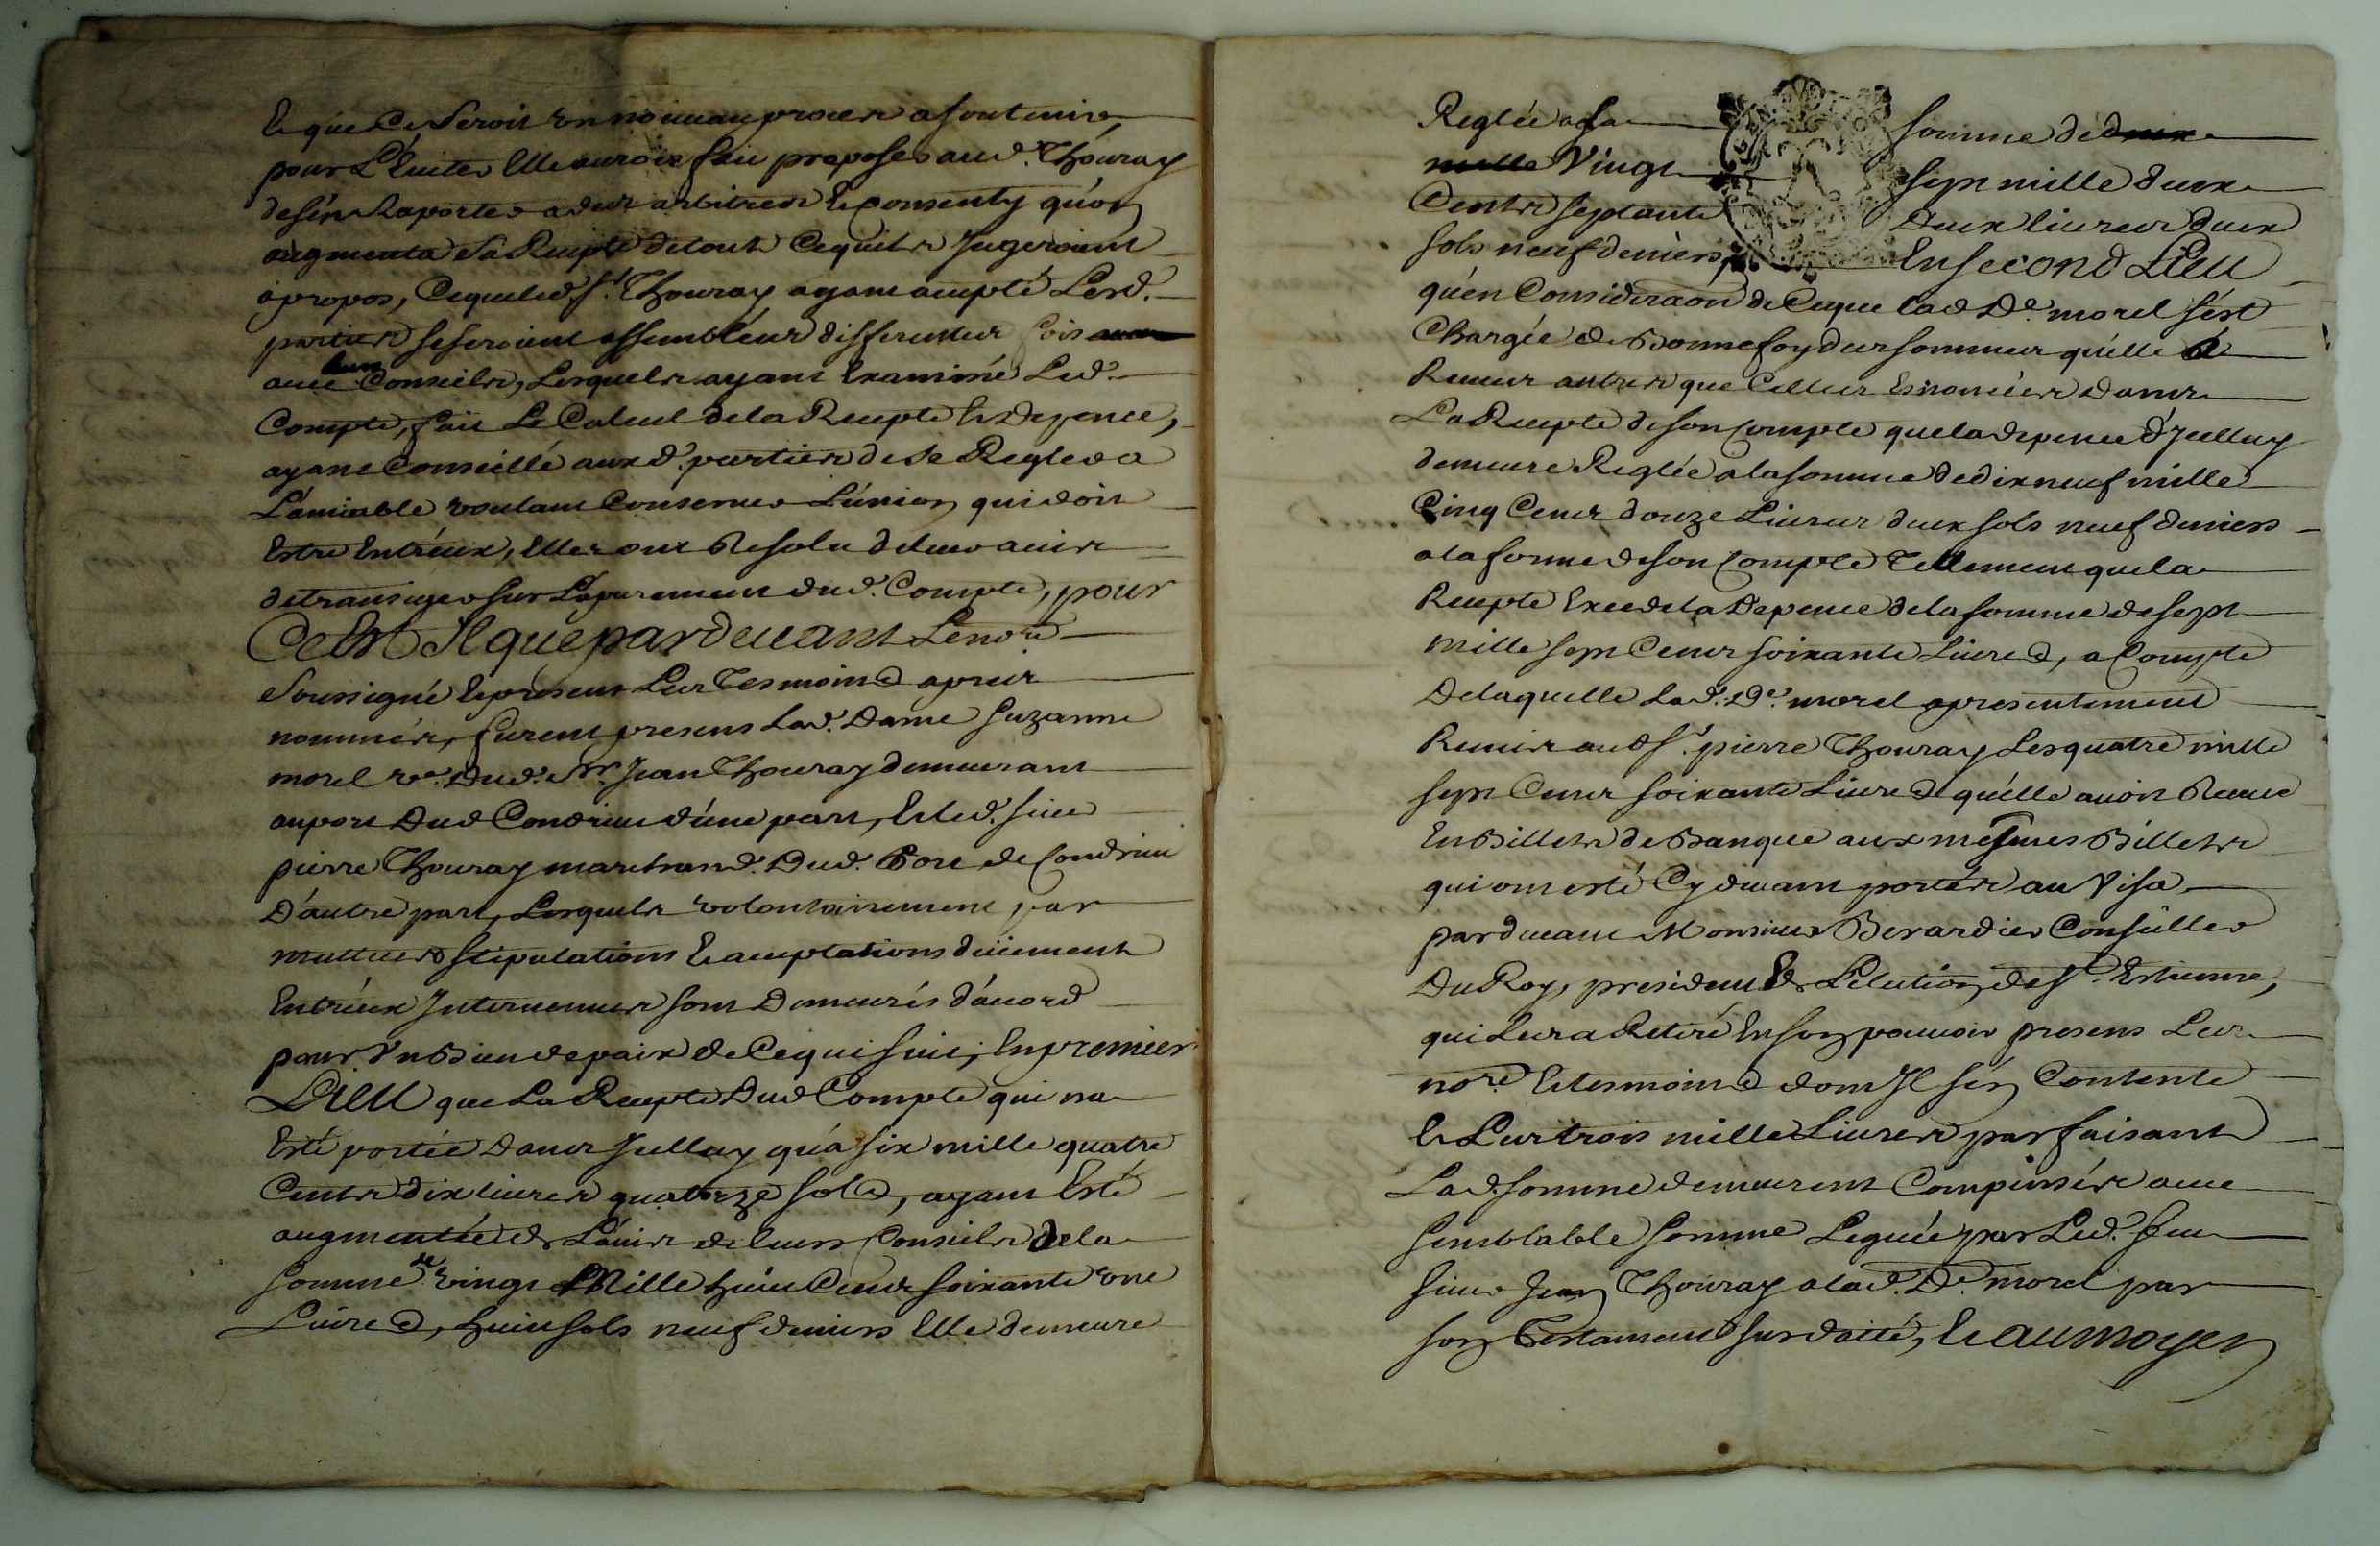 Et que Ce Seroit un nouveau proces a soutenir,
pour L'Eviter Elle auroit fait proposer aud. Thouray
de s'en Raporter a deux arbitres Et consenty qu'on
augmenta Sa Recepte de tout Ce quils Jugeroient
a propos, Ce que led. Sr. Thouray ayant accepté Lesd.
parties se seroient assemblées differentes fois
avec leurs Conseils, Lesquels ayant Examiné Led.
Compte, fait Le Calcul de la Recepte Et Depence,
ayant Conseillé auxd. parties de Se Regler a
L'amiable voulant Conserver L'union qui doit
Estre Entr'eux, Elles ont Resolu de leur avis
de transiger sur L'apurement dud. Compte, pour
Ce Est Il que pardevant Le nore.
Soussigné Et presens Les Tesmoins apres
nommés, furent presens Lad. Dame Suzanne
morel ve. Dud. Sr. Jean Thouray demeurant
au port Dud Condrieu d'une part, Et led. sieur
pierre Thouray marchand. Dud. Port de Condrieu
D'autre part, Lesquels volontairement par
mutues stipulations Et acceptations düement
Entr'eux Intervenues sont Demeurés d'acord
pour Un Bien de paix de Ce qui suit; En premier
Lieu que La Recepte Dud Compte qui na
Esté portée Dans Icelluy qu'a six mille quatre
Cents dix livres quatorze sols, ayant Esté
augmentée de L'avis de leurs Conseils de la
somme de vingt Mille huit Cents soixante une
Livres, huit sols neuf deniers Elle demeure
Reglée a la somme de deux
mille Vingt sept mille deux
Cents septante Deux livres deux
sols neuf deniers, En second Lieu
qu'en Consideraon de Ce que lad De. morel s'est
Chargée de Bonne foy des sommes qu'elle a
Receues autres que Celles Enoncées Dans
La Recepte de son Compte que la depence d'Icelluy
demeure Reglée a la somme de dix neuf mille
Cinq Cents douze Livres deux sols neuf deniers
a la forme de son Compte Tellement que la
Recepte Excede la Depence de la somme de sept
mille sept Cents soixante Livres, a Compte
De laquelle Lad. De. morel a presentement
Remis aud Sr. pierre Thouray Les quatre mille
sept Cents soixante Livres qu'elle avoit Receue
En Billets de Banque aux mesmes Billets
qui ont esté Cy devant portés au Visa
pardevant Monsieur Berardier Conseiller
Du Roy, president En L'Election de St. Estienne,
qui Les a Retiré En son pouvoir presens Les
nore. Et tesmoins dont Il s'en Contente
Et Les trois mille Livres parfaisant
Lad. somme demeurent Compensés avec
semblable somme Leguée par Led. feu
sieur Jean Thouray a lad. De. morel par
son Testament sus daté, Et au moyen